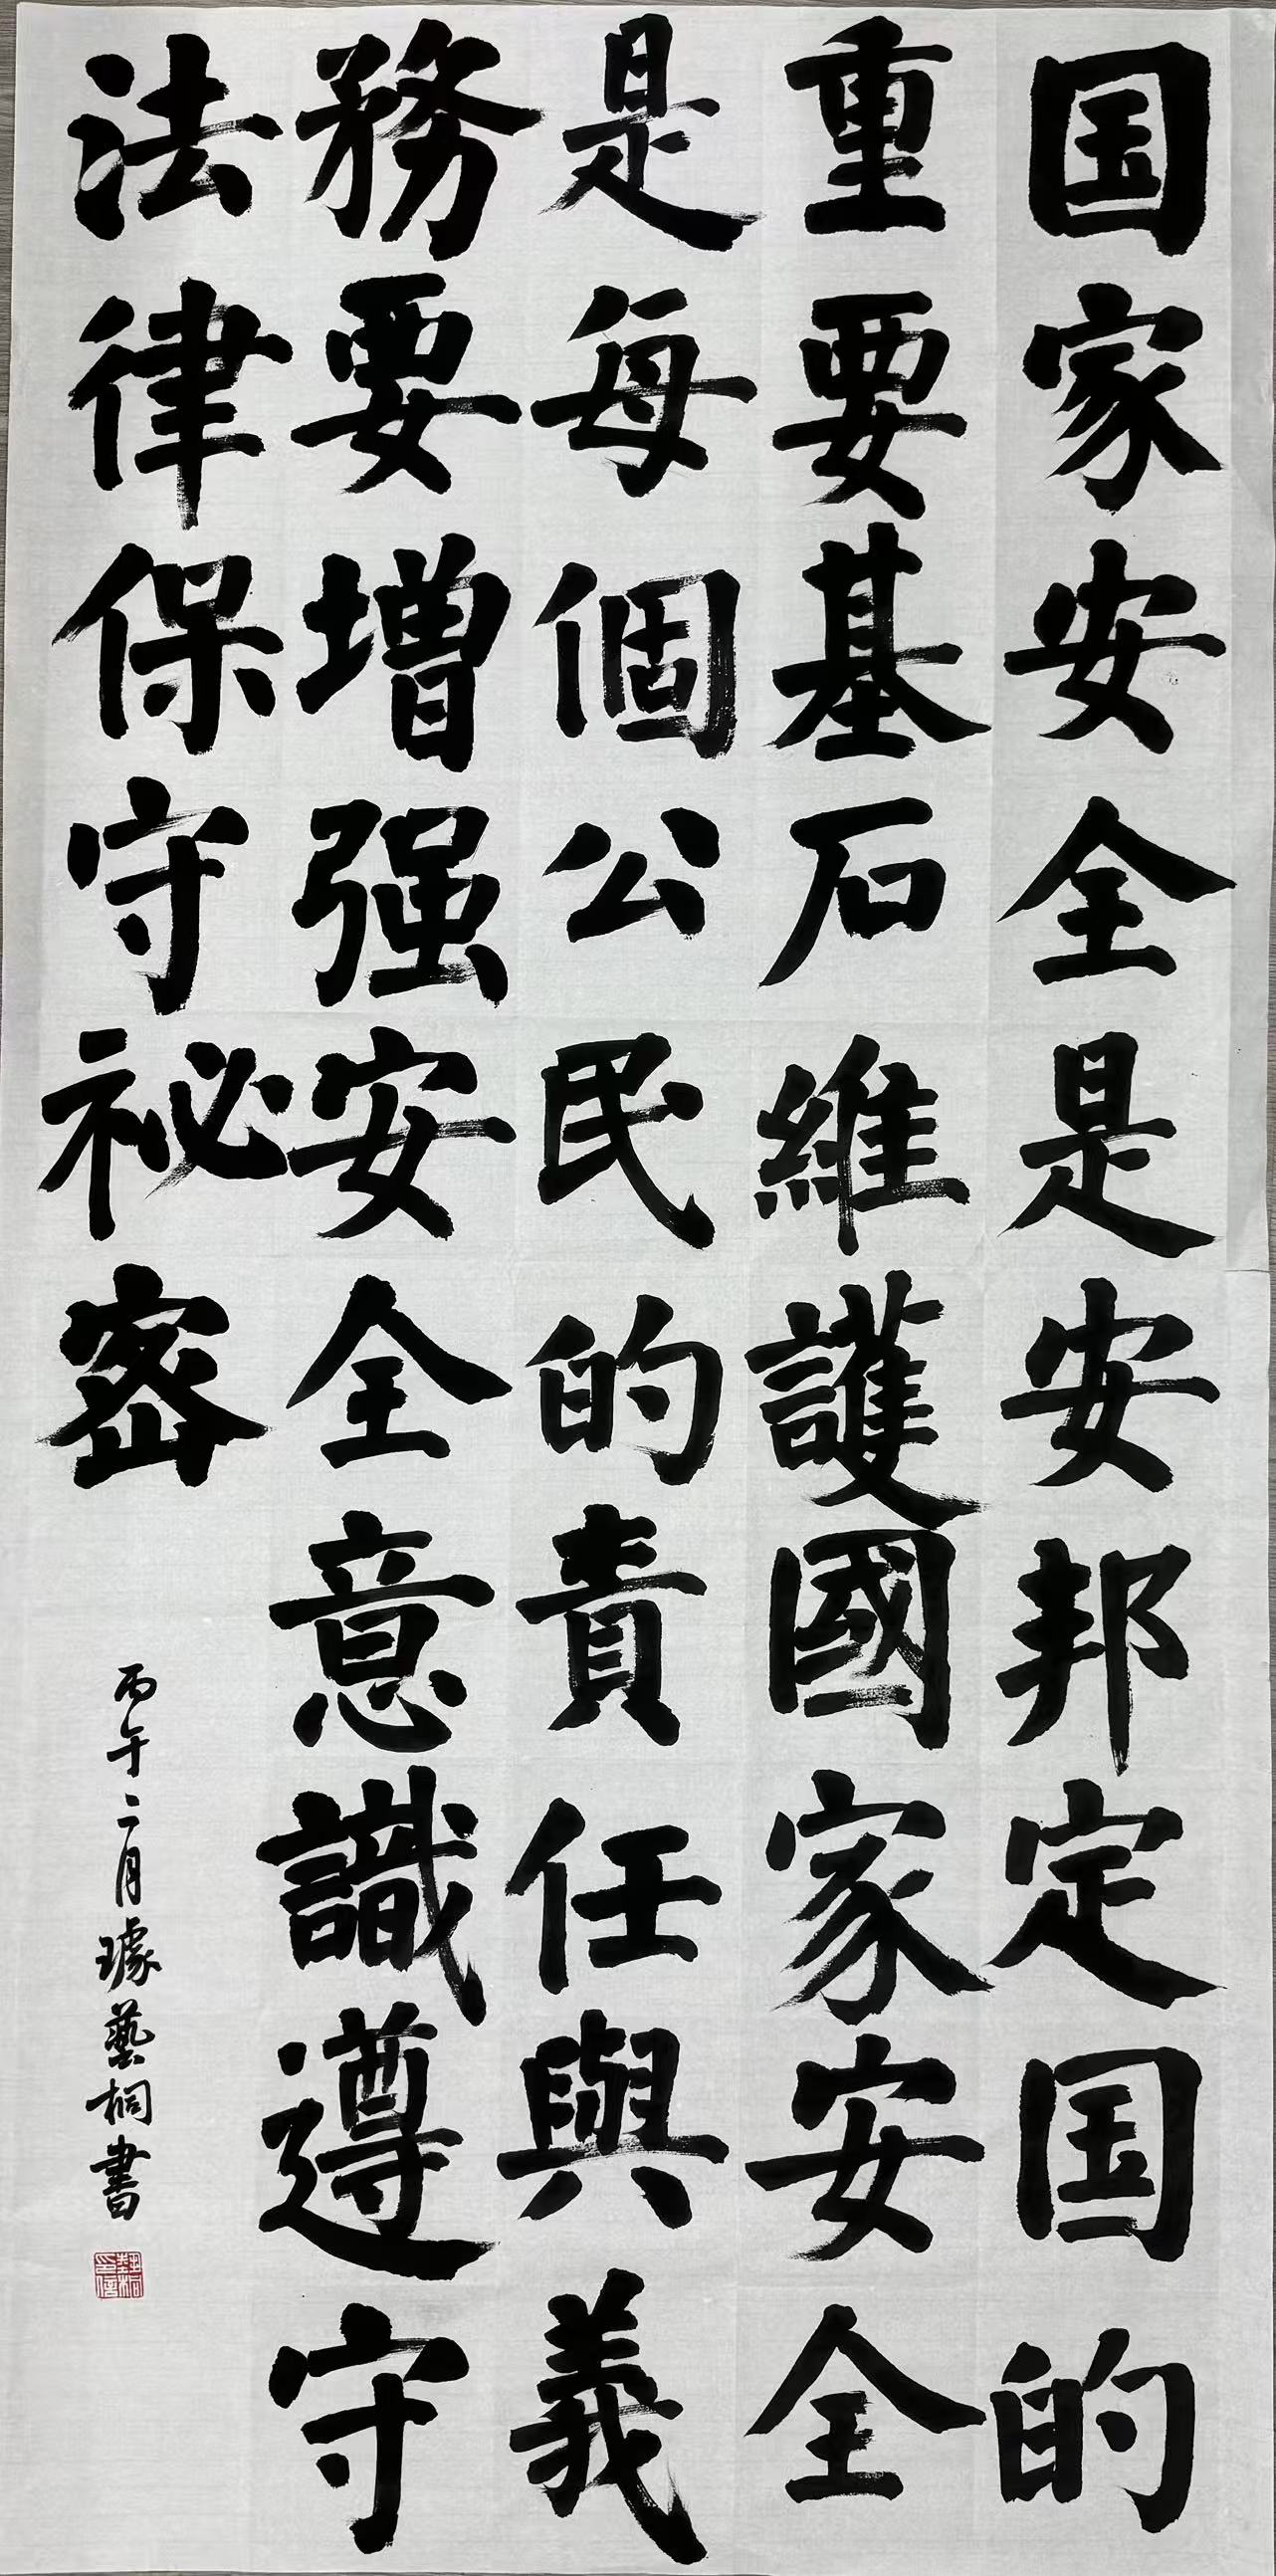 国家安全是安邦定国的
重要基石維護國家安全
是每個公民的責任與義
務要增强安全意識遵守
法律保守祕密
丙午二月璩藝桐書